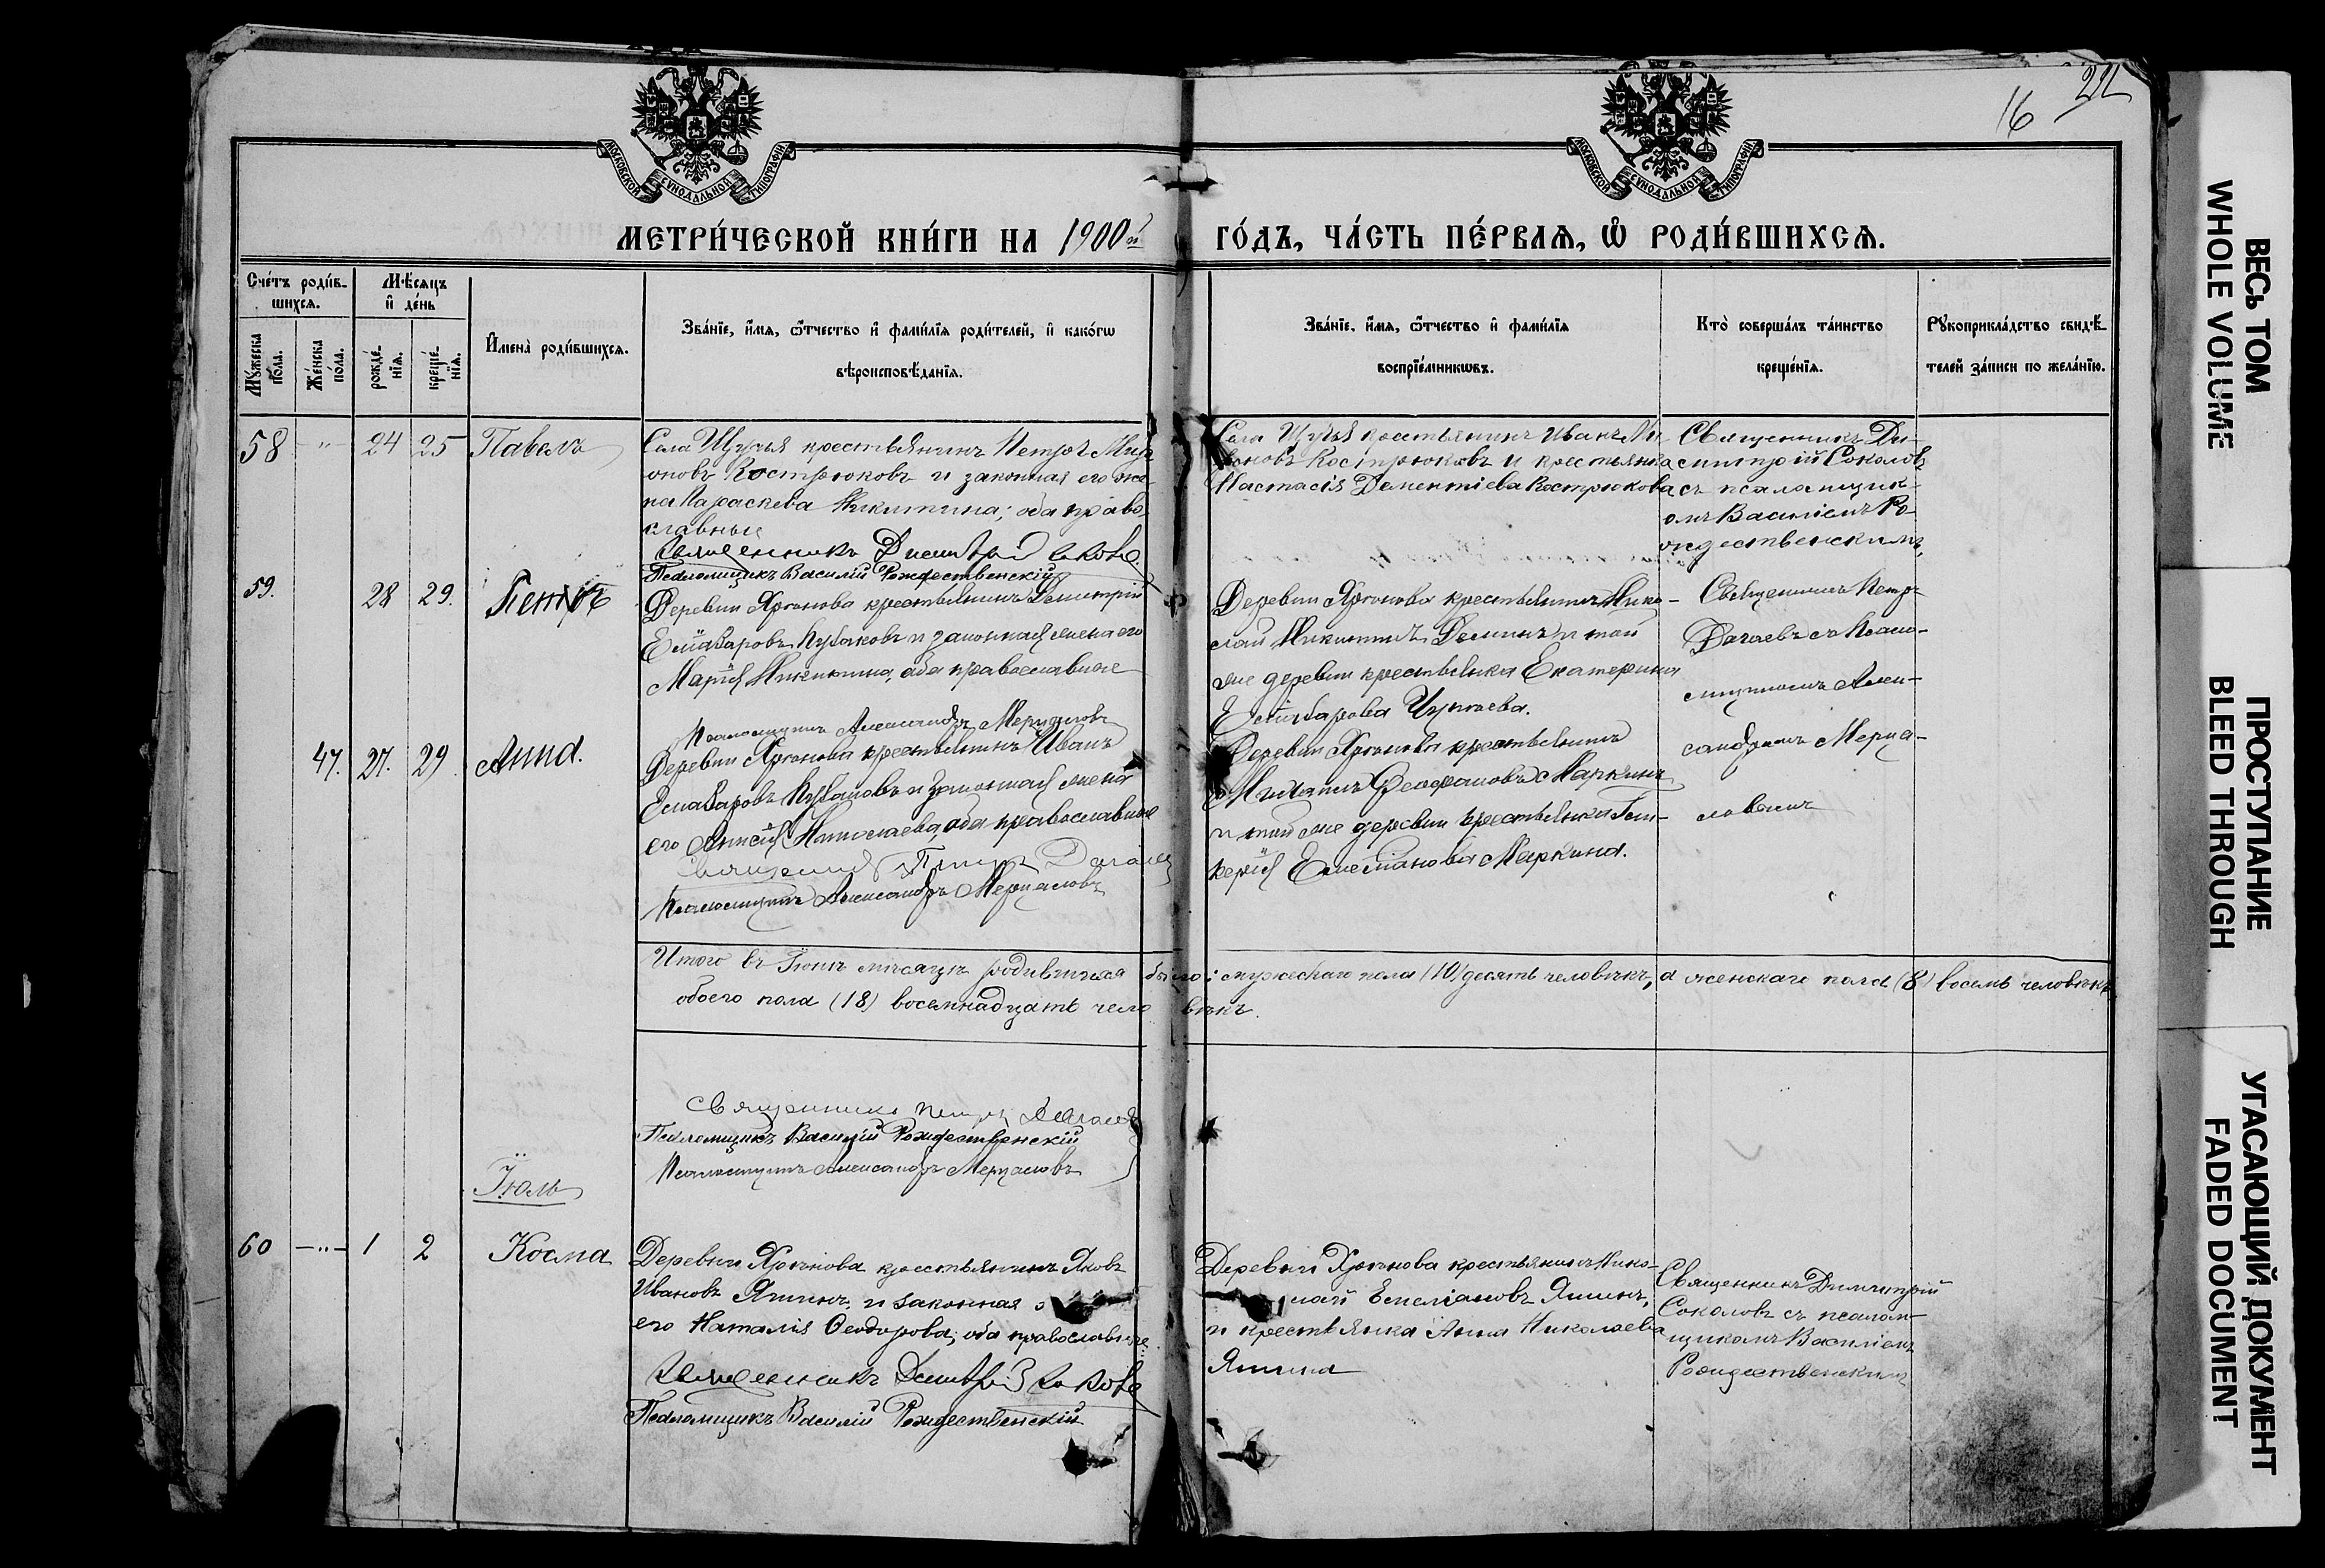 16 22
МОСКОВСКОЙ СѴНОДАЛЬНОЙ ТИПОГРАФІИ
МОСКОВСКОЙ СѴНОДАЛЬНОЙ ТИПОГРАФІИ
МЕТРИ́ЧЕСКОЙ КНИ́ГИ НА 1900й ГО́ДЪ, ЧА́СТЬ ПЕ́РВАѦ, Ѽ РОДИ́ВШИХСѦ.
Сче́тъ роди́в-
шихсѧ.
Мꙋ́жеска
по́ла.
Же́нска
по́ла.
Мѣ́сѧцъ
и҆ де́нь
рожде́-
нїѧ.
креще́-
нїѧ.
И҆мена̀ роди́вшихсѧ.
Зва́нїе, и҆́мѧ, ѻ҆́тчество и҆ фами́лїѧ роди́телей, и҆ како́гѡ
вѣроисповѣ́данїѧ.
Зва́нїе, и҆́мѧ, ѻ҆́тчество и҆ фами́лїѧ
воспрїе́мникѡвъ.
Кто̀ соверша́лъ та́инство
креще́нїѧ.
Рꙋкоприкла́дство свидѣ́-
телей за́писи по жела́нїю.
58 -"- 24 25 Павелъ
Села Щучья крестьянинъ Петръ Мир-
оновъ Кострюковъ и законная его же-
на Параскева Никитина; оба право-
славные
Священникъ Димитрій Соколовъ
Псаломщикъ Василій Рождественскій
Села Щучья крестьянинъ Иванъ Ми-
роновъ Кострюковъ и крестьянка
Настасія Дементіева Кострюкова
Священникъ Ди-
митрій Соколовъ
съ псаломщик-
омъ Василіемъ Ро-
ждественскимъ
59. 28 29. Петръ
Деревни Хрѣнова крестьянинъ Димитрій
Еліазаровъ и законная жена его
Марія Никитина, оба православные
Псаломщикъ Александръ Мерцаловъ
Деревни Хрѣнова крестьянинъ Нико-
лай Никитинъ Деминъ и той
же деревни крестьянка Екатерина
Священникъ Петръ
съ Псало-
мщикомъ Алек-
сандромъ Мерца-
ловымъ
47. 27. 29. Анна.
Деревни Хрѣнова крестьянинъ Иванъ
и законная жена
его Анисія Николаева, оба православные
Священникъ Петръ
Псаломщикъ Александръ Мерцаловъ
Деревни Хрѣнова крестьянинъ
Михаилъ Феофановъ Маркинъ
и той же деревни крестьянка Гли-
керія Емеліанова Маркина.
Итого въ Іюнѣ мѣсяцѣ родившихся было: мужескаго пола (10) десять человѣкъ, а женскаго пола (8) восемь человѣкъ
обоего пола (18) восемнадцать человѣкъ.
Священникъ Петръ
Псаломщикъ Василій Рождественскій
Псаломщикъ Александръ Мерцаловъ
Іюль
60 -"- 1 2 Косма
Деревни Хрѣнова крестьянинъ Яковъ
Ивановъ Яшинъ и законная
его Наталія Ѳеодорова; оба православные.
Священникъ Димитрій Соколовъ
Псаломщикъ Василій Рождественскій
Деревни Хрѣнова крестьянинъ Нико-
лай Емеліановъ Яшинъ,
и крестьянка Анна Николаева
Яшина
Священникъ Димитрій
Соколовъ съ псалом-
щикомъ Василіемъ
Рождественскимъ
ВЕСЬ ТОМ
WHOLE VOLUME
ПРОСТУПАНИЕ
BLEED THROUGH
УГАСАЮЩИЙ ДОКУМЕНТ
FADED DOCUMENT